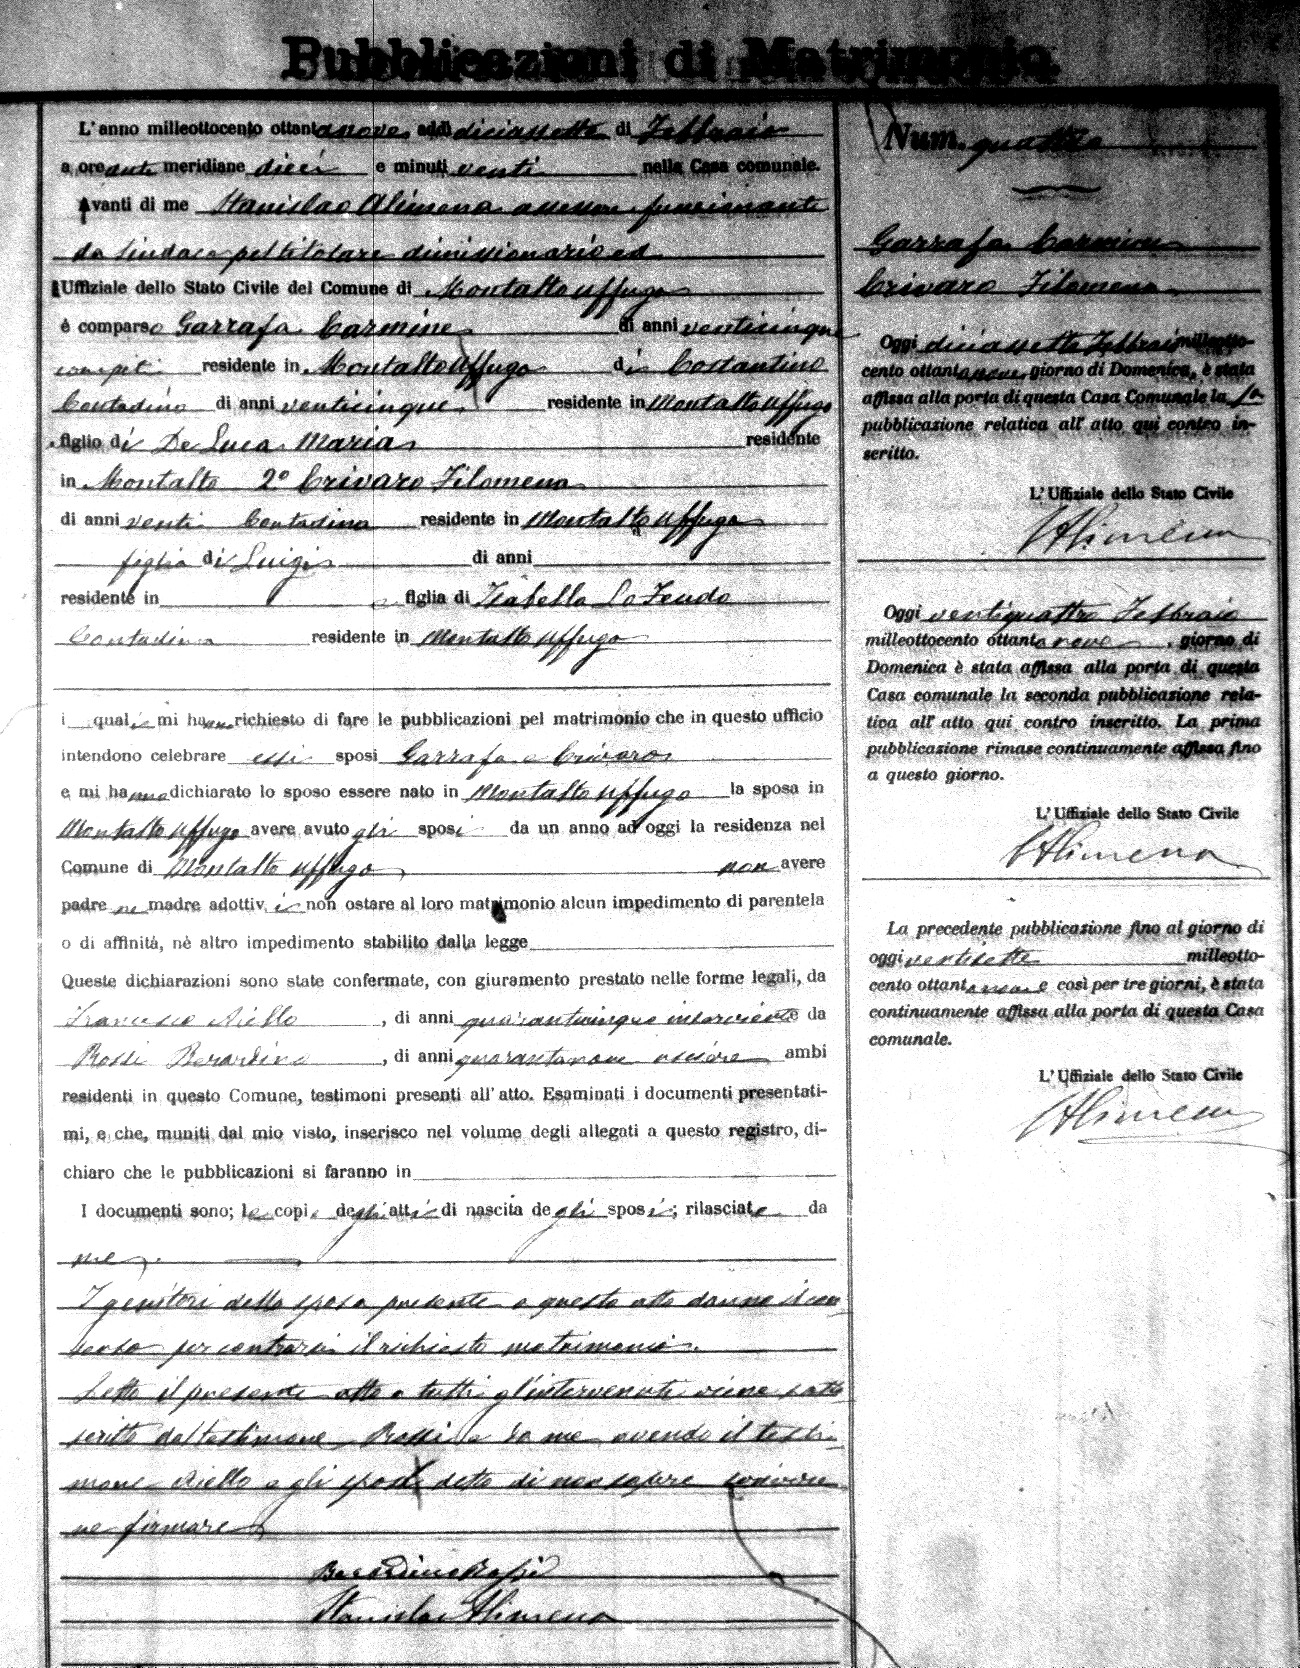 Pubblicazioni di Matrimonio
L'anno milleottocento ottantanove, addi diciassette di Febbraio
a ore anti meridiane dieci e minuti venti nella Casa comunale.
Avanti di me Stanislao Alimena assessore funzionante
da sindaco pel titolare dimissionario ed
Uffiziale dello Stato Civile del Comune di Montalto Uffugo
è comparso Garrafa Carmine di anni venticinque
compiti residente in Montalto Uffugo di Costantino
Contadino di anni venticinque residente in Montalto Uffugo
figlio di De Luca Maria residente
in Montalto 2º Crivaro Filomena
di anni venti Contadina residente in Montalto Uffugo
figlia di Luigi di anni
residente in figlia di Isabella Lo Feudo
Contadina residente in Montalto Uffugo
i quali mi hanno richiesto di fare le pubblicazioni pel matrimonio che in questo ufficio
intendono celebrare essi sposi Garrafa e Crivaro
e mi hanno dichiarato lo sposo essere nato in Montalto Uffugo la sposa in
Montalto Uffugo avere avuto gli sposi da un anno ad oggi la residenza nel
Comune di Montalto Uffugo non avere
padre ne madre adottivi non ostare al loro matrimonio alcun impedimento di parentela
o di affinità, nè altro impedimento stabilito dalla legge
Queste dichiarazioni sono state confermate, con giuramento prestato nelle forme legali, da
Francesco Aiello, di anni quarantacinque inserviente da
Rossi Berardino, di anni quarantanove usciere ambi
residenti in questo Comune, testimoni presenti all'atto. Esaminati i documenti presentati-
mi, e che, muniti dal mio visto, inserisco nel volume degli allegati a questo registro, di-
chiaro che le pubblicazioni si faranno in
I documenti sono; le copie degli atti di nascita degli sposi; rilasciate da
me.
I genitori della sposa presente a questo atto danno il con
senso per contrarsi il richiesto matrimonio.
Letto il presente atto a tutti gl'intervenuti viene sotto
scritto dal testimone Rossi e da me avendo il testi
mone Aiello e gli sposi detto di non sapere scrivere
ne firmare
Berardino Rossi
Stanislao Alimena
Num. quattro
Garrafa Carmine
Crivaro Filomena
Oggi diciassette Febbraio milleotto-
cento ottantanove giorno di Domenica, è stata
affissa alla porta di questa Casa Comunale la 1a
pubblicazione relativa all'atto qui contro in-
scritto.
L'Uffiziale dello Stato Civile
SAlimena
Oggi ventiquattro Febbraio
milleottocento ottantanove, giorno di
Domenica è stata affissa alla porta di questa
Casa comunale la seconda pubblicazione rela-
tica all'atto qui contro inscritto. La prima
pubblicazione rimase continuamente affissa fino
a questo giorno.
L'Uffiziale dello Stato Civile
SAlimena
La precedente pubblicazione fino al giorno di
oggi ventisette milleotto-
cento ottantanove e così per tre giorni, è stata
continuamente affissa alla porta di questa Casa
comunale.
L'Uffiziale dello Stato Civile
SAlimena